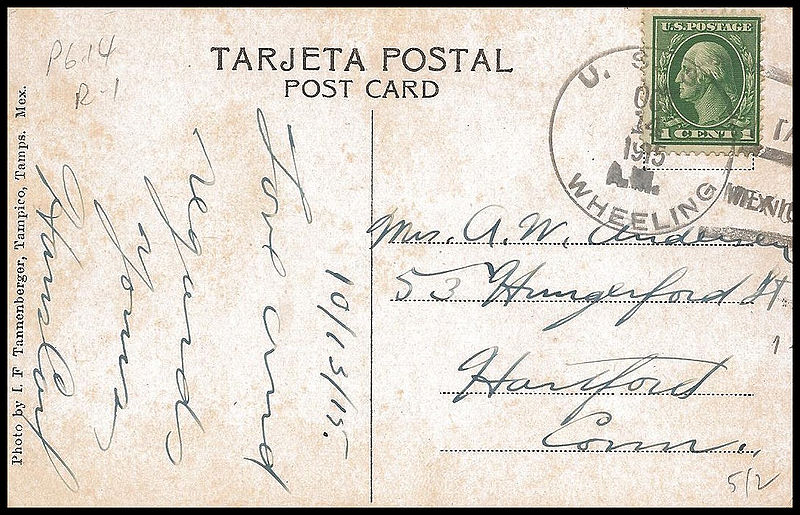 P6.14
R-1
TARJETA POSTAL
POST CARD
U.S. POSTAGE
1 CENT 1
U. S. S.
OCT
1915
A.M.
WHEELING
MEXICO
Photo by I. F Tannenberger, Tampico, Tamps. Mex.
10/13/15.
Love and
regards
Yours
Mrs. A. W. Anderson
53 Hungerford St
Hartford
Conn.,
5/2